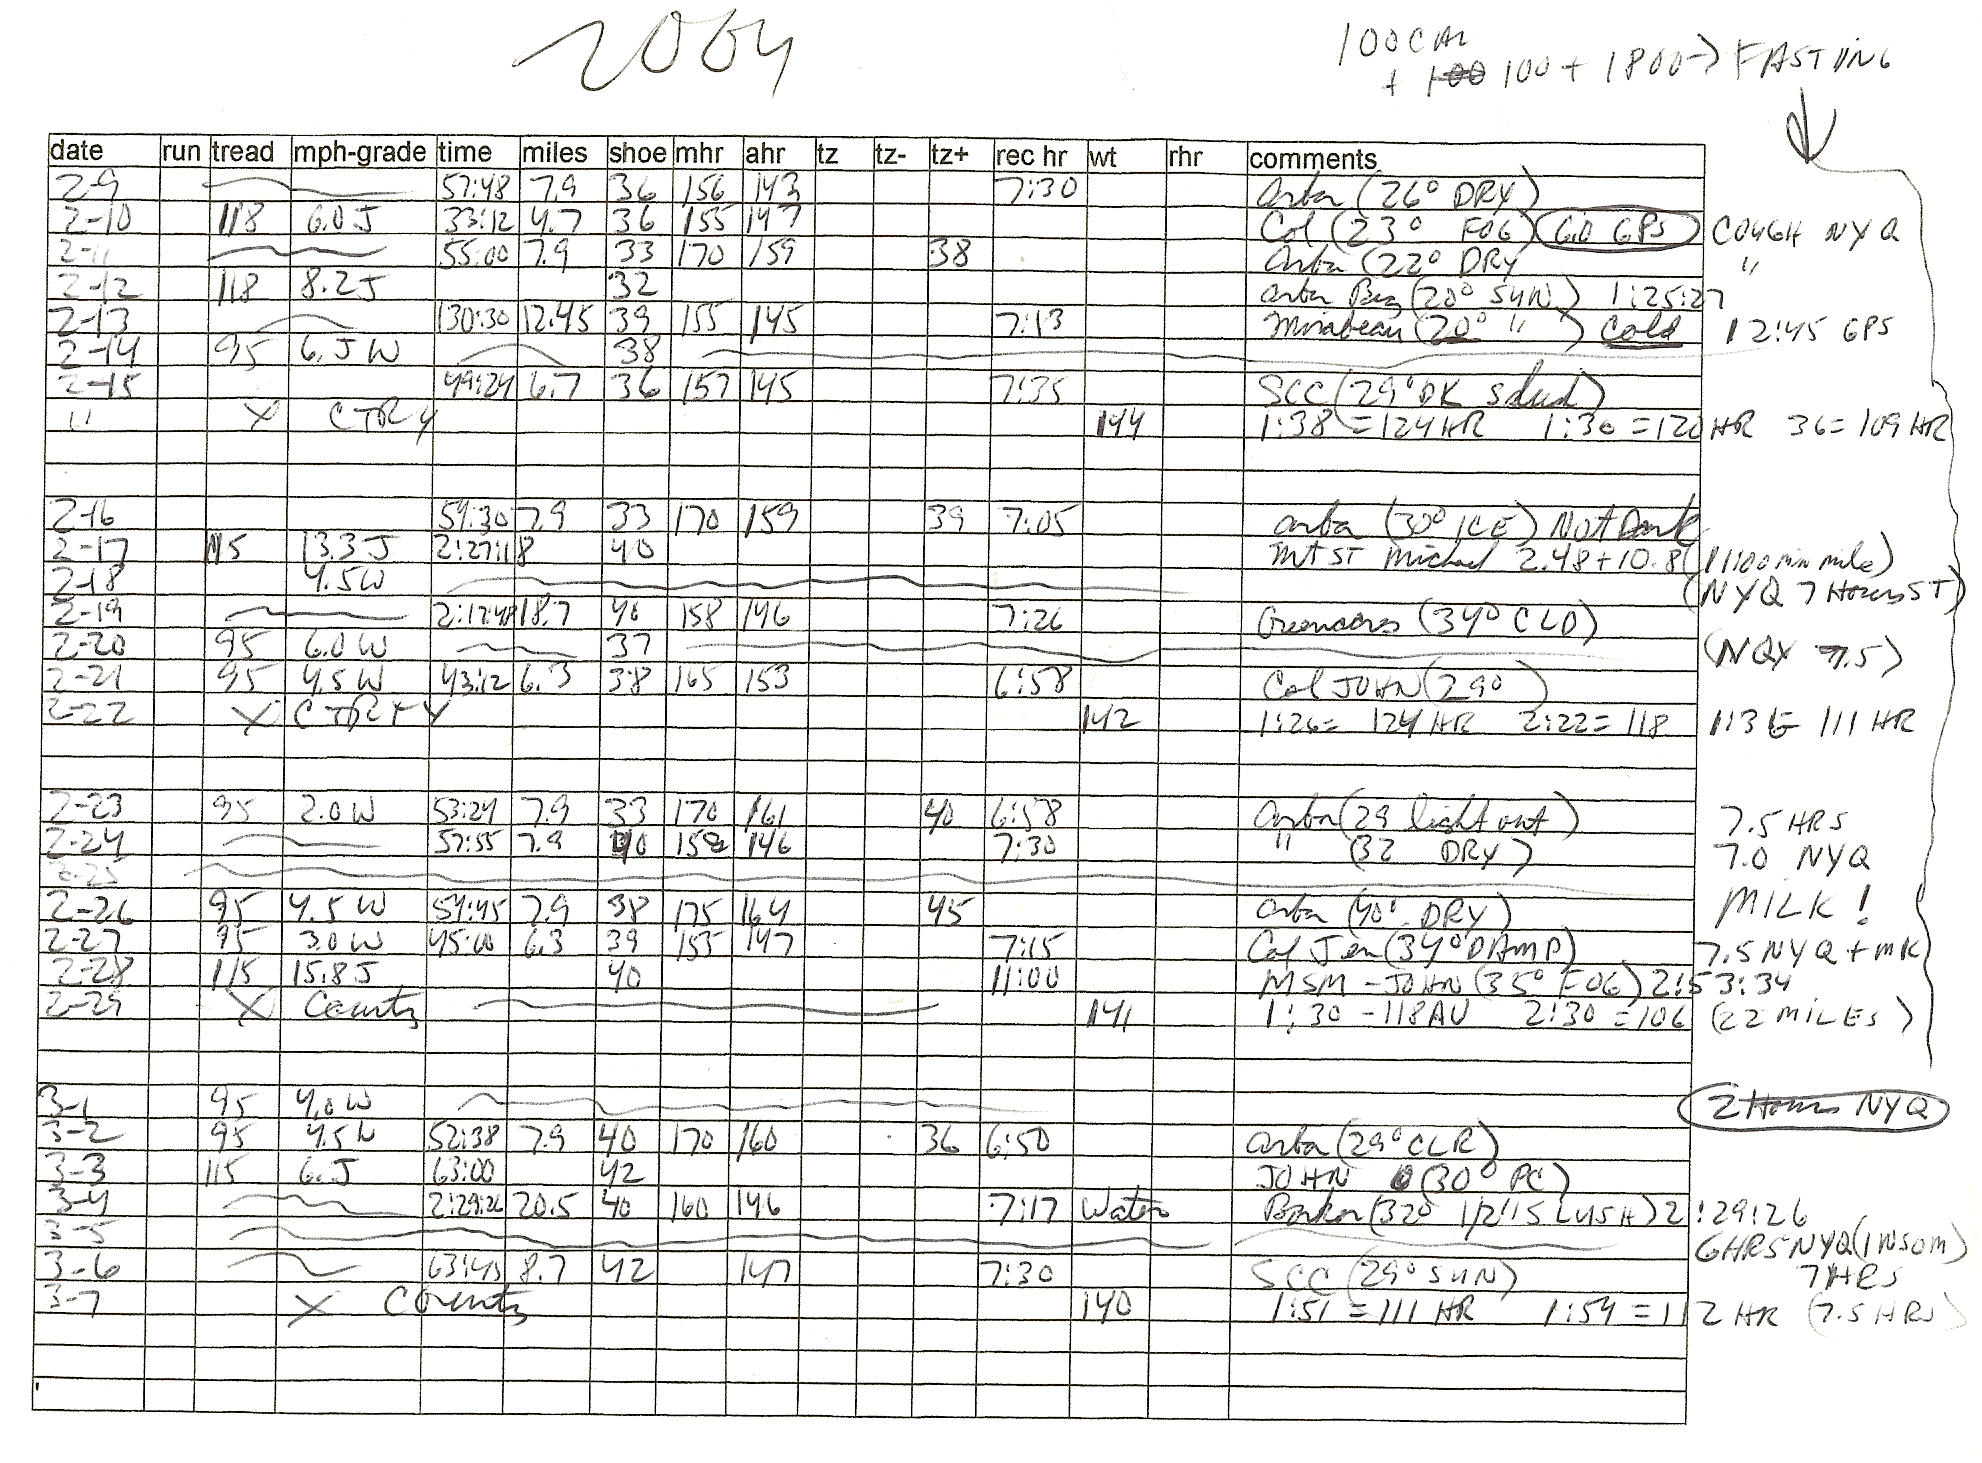 2004
100 CAL
+ 100 + 1800 → FASTING
date run tread mph-grade time miles shoe mhr ahr tz tz- tz+ rec hr wt rhr comments
2-9 57:48 7.9 36 156 143 7:30 (26° DRY)
2-10 118 6.0 J 33:12 4.7 36 155 147 Col (23° FOG) 6.0 GPS COUGH NYQ
2-11 55:00 7.9 33 170 159 38 (22° DRY "
2-12 118 8.2 J 32 (20° SUN) 1:25:27
2-13 130:30 12.45 39 155 145 7:13 Mirabeau (20° ") Cold 12:45 GPS
2-14 95 6. J W 38
2-15 49:24 6.7 36 157 145 7:35 SCC (29° DK
" X CTRY 144 1:38 = 124 HR 1:30 = 120 HR 36 = 109 HR
2-16 54:30 7.9 33 170 159 39 7:05 (30° ICE) Not Dark
2-17 115 13.3 J 2:27:18 40 Mt ST Michael 2.48 + 10.8 (11:00 min mile)
2-18 4.5 W (NYQ 7 Hours ST)
2-19 2:17:48 18.7 40 158 146 7:26 Greenacres (34° CLD)
2-20 95 6.0 W 37 (NQY 7.5)
2-21 95 4.5 W 43:12 6.3 38 165 153 6:58 Col JOHN (29°)
2-22 X 142 1:26 = 124 HR 2:22 = 118 111 HR
2-23 95 2.0 W 53:24 7.9 33 170 161 40 6:58 (29 light out) 7.5 HRS
2-24 57:55 7.9 40 146 7:30 " (32 DRY) 7.0 NYQ
2-25
2-26 95 4.5 W 54:45 7.9 38 175 164 45 (40° DRY) MILK!
2-27 95 3.0 W 45:00 6.3 39 153 147 7:15 Col Jen (34° DAMP) 7.5 NYQ + MK
2-28 115 15.8 J 40 11:00 MSM - JOHN (35° FOG) 2:53:34
2-29 X County 141 1:30 - 118 AV 2:30 = 106 (22 MILES)
3-1 95 4.0 W 2 Hours NYQ
3-2 95 4.5 W 52:38 7.9 40 170 160 36 6:50 (29° CLR)
3-3 115 6. J 63:00 42 JOHN (30° PC)
3-4 2:29:26 20.5 40 160 146 7:17 Water Barker (32° 1/2" SLUSH) 2:29:26
3-5 6 HRS NYQ (INSOM)
3-6 63:45 8.7 42 147 7:30 SCC (29° SUN) 7 HRS
3-7 X County 140 1:51 = 111 HR 1:54 = 112 HR (7.5 HRS)